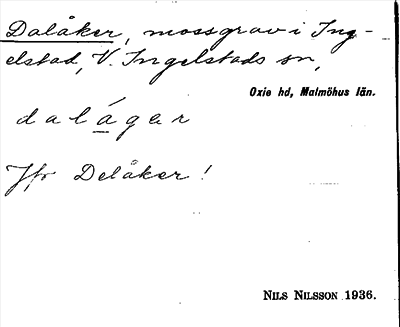 Dalåker, mossgrav i Ing-
elstad, V. Ingelstads sn,
Oxie hd, Malmöhus län.
dalágər
Jfr Delåker!
NILS NILSSON 1936.